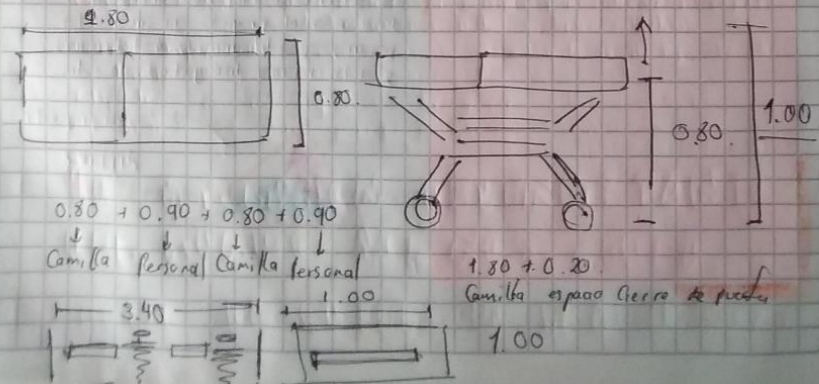 1.80
0.80
0.80
1.00
0.80 + 0.90 + 0.80 + 0.90
Camilla Personal Camilla Personal
1.80 + 0.20
Camilla espacio Cierre de puerta
3.40
1.00
1.00